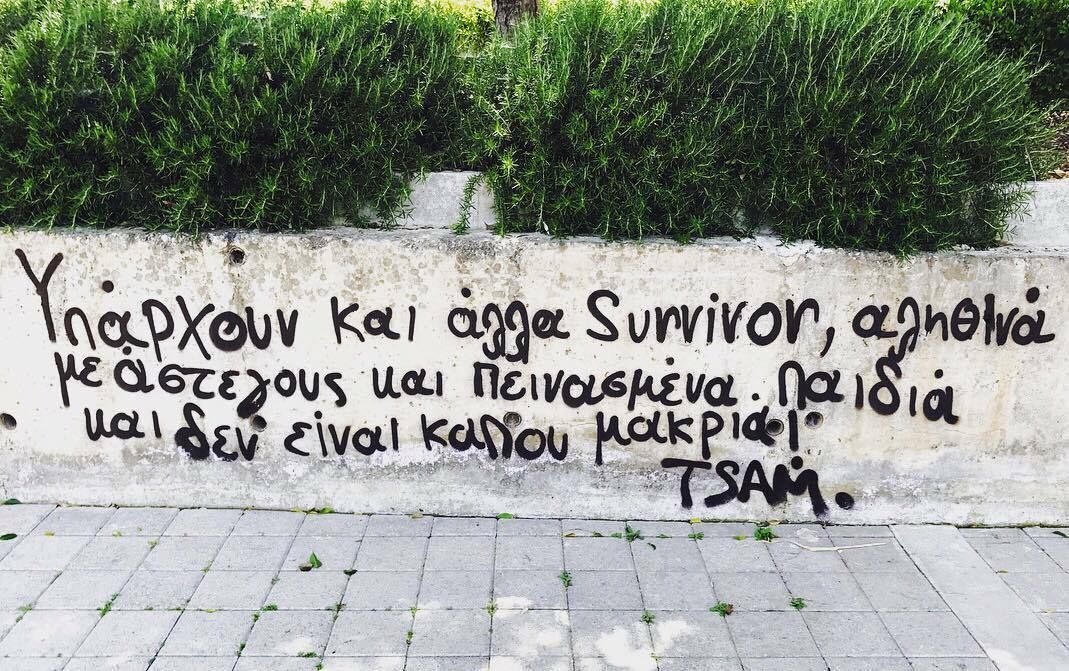 Υπάρχουν και άλλα Survivor, αληθινά
με άστεγους και πεινασμένα. παιδιά
και δεν είναι καπου μακριά!
TSAM.